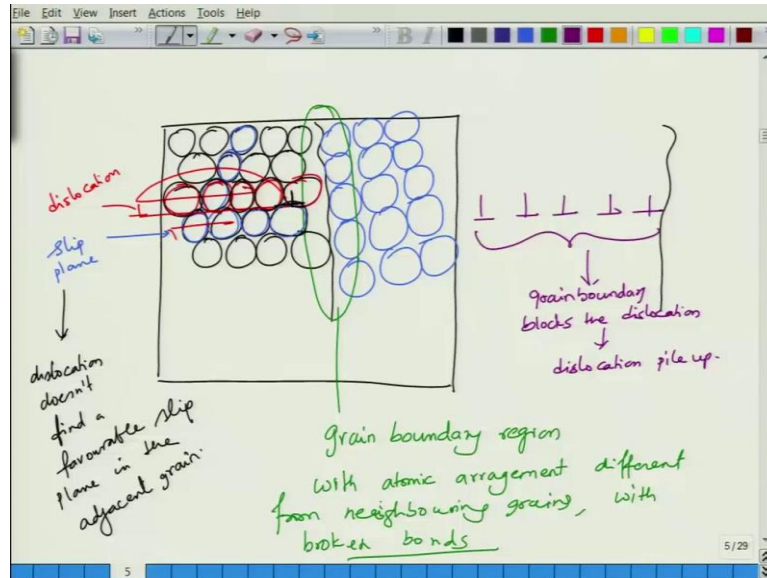 File Edit View Insert Actions Tools Help
B I
dislocation
slip
plane
dislocation
doesn't
find a
favourable slip
plane in the
adjacent grain.
grain boundary
blocks the dislocation
dislocation pile up.
grain boundary region
with atomic arragement different
from neighbouring grains, with
broken bonds
5/29
5